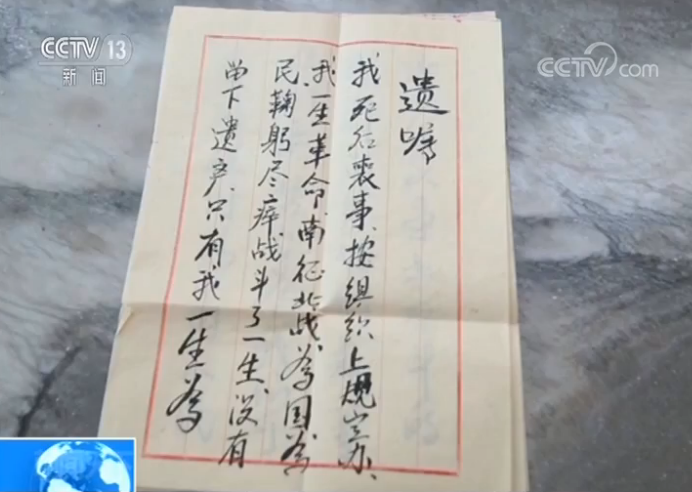 CCTV 13
新闻
CCTV.com
遗嘱
我死后丧事、按组织上规定办、
我一生革命南征北战、为国为
民鞠躬尽瘁战斗了一生、没有
留下遗产、只有我一生为